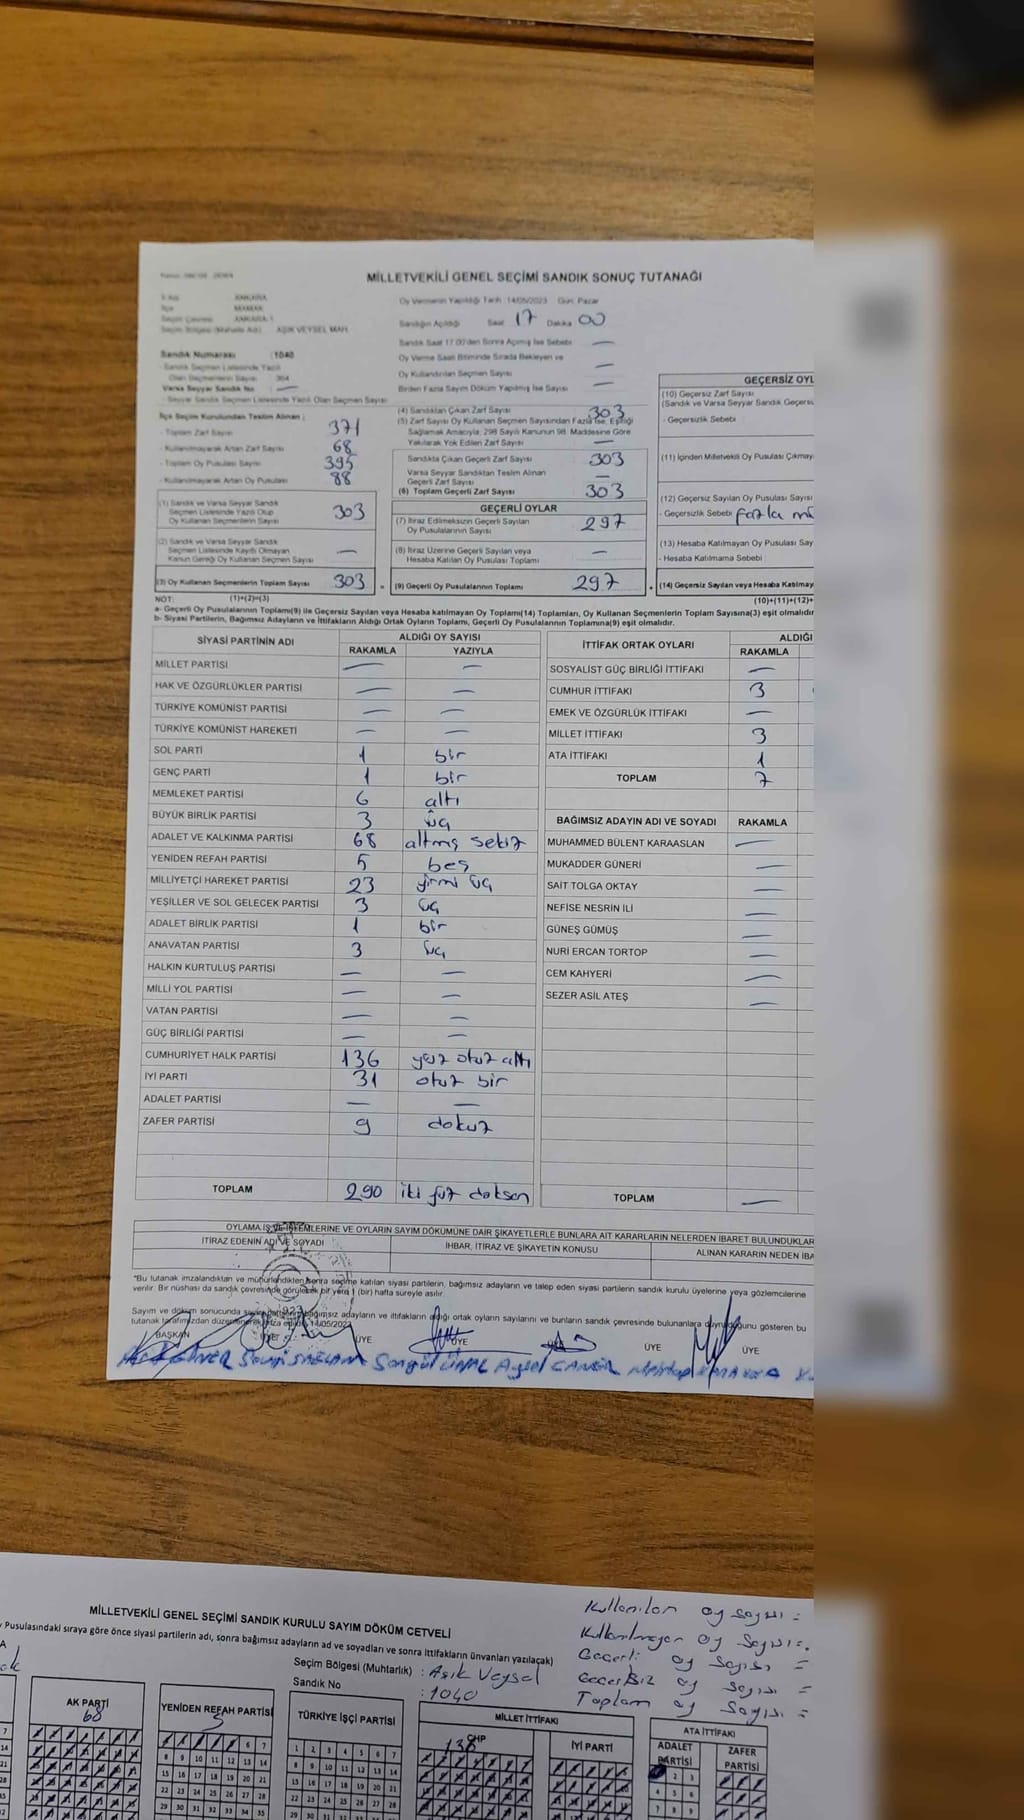 MİLLETVEKİLİ GENEL SEÇİMİ SANDIK SONUÇ TUTANAĞI
İl Adı ANKARA
İlçe MAMAK
Seçim Çevresi ANKARA-1
Seçim Bölgesi (Mahalle Adı) AŞIK VEYSEL MAH.
Oy Vermenin Yapıldığı Tarih 14/05/2023 Gün: Pazar
Sandığın Açıldığı Saat 17 Dakika 00
Sandık Saat 17.00'den Sonra Açılmış İse Sebebi —
Oy Verme Saati Bitiminde Sırada Bekleyen ve
Oy Kullandırılan Seçmen Sayısı —
Birden Fazla Sayım Döküm Yapılmış İse Sayısı —
Sandık Numarası : 1040
- Sandık Seçmen Listesinde Yazılı
Olan Seçmenlerin Sayısı 364
Varsa Seyyar Sandık No —
- Seyyar Sandık Seçmen Listesinde Yazılı Olan Seçmen Sayısı
İlçe Seçim Kurulundan Teslim Alınan ;
- Toplam Zarf Sayısı 371
- Kullanılmayarak Artan Zarf Sayısı 68
- Toplam Oy Pusulası Sayısı 395
- Kullanılmayarak Artan Oy Pusulası 88
(1) Sandık ve Varsa Seyyar Sandık
Seçmen Listesinde Yazılı Olup
Oy Kullanan Seçmenlerin Sayısı 303
(2) Sandık ve Varsa Seyyar Sandık
Seçmen Listesinde Kayıtlı Olmayan
Kanun Gereği Oy Kullanan Seçmen Sayısı —
(3) Oy Kullanan Seçmenlerin Toplam Sayısı 303 =
(4) Sandıktan Çıkan Zarf Sayısı 303
(5) Zarf Sayısı Oy Kullanan Seçmen Sayısından Fazla İse, Eşitliği
Sağlamak Amacıyla; 298 Sayılı Kanunun 98. Maddesine Göre
Yakılarak Yok Edilen Zarf Sayısı —
Sandıkta Çıkan Geçerli Zarf Sayısı 303
Varsa Seyyar Sandıktan Teslim Alınan
Geçerli Zarf Sayısı —
(6) Toplam Geçerli Zarf Sayısı 303
GEÇERLİ OYLAR
(7) İtiraz Edilmeksizin Geçerli Sayılan
Oy Pusulalarının Sayısı 297
(8) İtiraz Üzerine Geçerli Sayılan veya
Hesaba Katılan Oy Pusulası Toplamı —
(9) Geçerli Oy Pusulalarının Toplamı 297 +
GEÇERSİZ OYL
(10) Geçersiz Zarf Sayısı
(Sandık ve Varsa Seyyar Sandık Geçersi
- Geçersizlik Sebebi
(11) İçinden Milletvekili Oy Pusulası Çıkmay
(12) Geçersiz Sayılan Oy Pusulası Sayısı
- Geçersizlik Sebebi fazla mü
(13) Hesaba Katılmayan Oy Pusulası Say
- Hesaba Katılmama Sebebi
(14) Geçersiz Sayılan veya Hesaba Katılmay
(10)+(11)+(12)+
NOT: (1)+(2)=(3)
a- Geçerli Oy Pusulalarının Toplamı(9) ile Geçersiz Sayılan veya Hesaba katılmayan Oy Toplamı(14) Toplamları, Oy Kullanan Seçmenlerin Toplam Sayısına(3) eşit olmalıdır
b- Siyasi Partilerin, Bağımsız Adayların ve İttifakların Aldığı Ortak Oyların Toplamı, Geçerli Oy Pusulalarının Toplamına(9) eşit olmalıdır.
SİYASİ PARTİNİN ADI ALDIĞI OY SAYISI
RAKAMLA YAZIYLA
MİLLET PARTİSİ — —
HAK VE ÖZGÜRLÜKLER PARTİSİ — —
TÜRKİYE KOMÜNİST PARTİSİ — —
TÜRKİYE KOMÜNİST HAREKETİ — —
SOL PARTİ 1 bir
GENÇ PARTİ 1 bir
MEMLEKET PARTİSİ 6 altı
BÜYÜK BİRLİK PARTİSİ 3 üç
ADALET VE KALKINMA PARTİSİ 68 altmış sekiz
YENİDEN REFAH PARTİSİ 5 beş
MİLLİYETÇİ HAREKET PARTİSİ 23 yirmi üç
YEŞİLLER VE SOL GELECEK PARTİSİ 3 üç
ADALET BİRLİK PARTİSİ 1 bir
ANAVATAN PARTİSİ 3 üç
HALKIN KURTULUŞ PARTİSİ — —
MİLLİ YOL PARTİSİ — —
VATAN PARTİSİ — —
GÜÇ BİRLİĞİ PARTİSİ — —
CUMHURİYET HALK PARTİSİ 136 yüz otuz altı
İYİ PARTİ 31 otuz bir
ADALET PARTİSİ — —
ZAFER PARTİSİ 9 dokuz
TOPLAM 290 iki yüz doksan
İTTİFAK ORTAK OYLARI ALDIĞI
RAKAMLA
SOSYALİST GÜÇ BİRLİĞİ İTTİFAKI —
CUMHUR İTTİFAKI 3
EMEK VE ÖZGÜRLÜK İTTİFAKI —
MİLLET İTTİFAKI 3
ATA İTTİFAKI 1
TOPLAM 7
BAĞIMSIZ ADAYIN ADI VE SOYADI RAKAMLA
MUHAMMED BÜLENT KARAASLAN —
MUKADDER GÜNERİ —
SAİT TOLGA OKTAY —
NEFİSE NESRİN İLİ —
GÜNEŞ GÜMÜŞ —
NURİ ERCAN TORTOP —
CEM KAHYERİ —
SEZER ASİL ATEŞ —
TOPLAM —
OYLAMA İŞ VE İŞLEMLERİNE VE OYLARIN SAYIM DÖKÜMÜNE DAİR ŞİKAYETLERLE BUNLARA AİT KARARLARIN NELERDEN İBARET BULUNDUKLAR
İTİRAZ EDENİN ADI VE SOYADI İHBAR, İTİRAZ VE ŞİKAYETİN KONUSU ALINAN KARARIN NEDEN İBA
"Bu tutanak imzalandıktan ve mühürlendikten sonra seçime katılan siyasi partilerin, bağımsız adayların ve talep eden siyasi partilerin sandık kurulu üyelerine veya gözlemcilerine
verilir. Bir nüshası da sandık çevresinde görülecek bir yere 1 (bir) hafta süreyle asılır.
Sayım ve döküm sonucunda siyasi partilerin, bağımsız adayların ve ittifakların aldığı ortak oyların sayılarını ve bunların sandık çevresinde bulunanlara duyurulduğunu gösteren bu
tutanak tarafımızdan düzenlenerek imza edildi. 14/05/2023
BAŞKAN ÜYE ÜYE ÜYE ÜYE ÜYE ÜYE
Sevgi SAĞLAM Songül ÜNAL Aysel CANSIZ
MİLLETVEKİLİ GENEL SEÇİMİ SANDIK KURULU SAYIM DÖKÜM CETVELİ
Pusulasındaki sıraya göre önce siyasi partilerin adı, sonra bağımsız adayların ad ve soyadları ve sonra ittifakların ünvanları yazılacak)
Seçim Bölgesi (Muhtarlık) : Aşık Veysel
Sandık No : 1040
Kullanılan oy sayısı =
Kullanılmayan oy sayısı =
Geçerli oy sayısı =
Geçersiz oy sayısı =
Toplam oy sayısı =
AK PARTİ
68
YENİDEN REFAH PARTİSİ
5
TÜRKİYE İŞÇİ PARTİSİ
MİLLET İTTİFAKI
CHP
136
İYİ PARTİ
ATA İTTİFAKI
ADALET PARTİSİ
ZAFER PARTİSİ